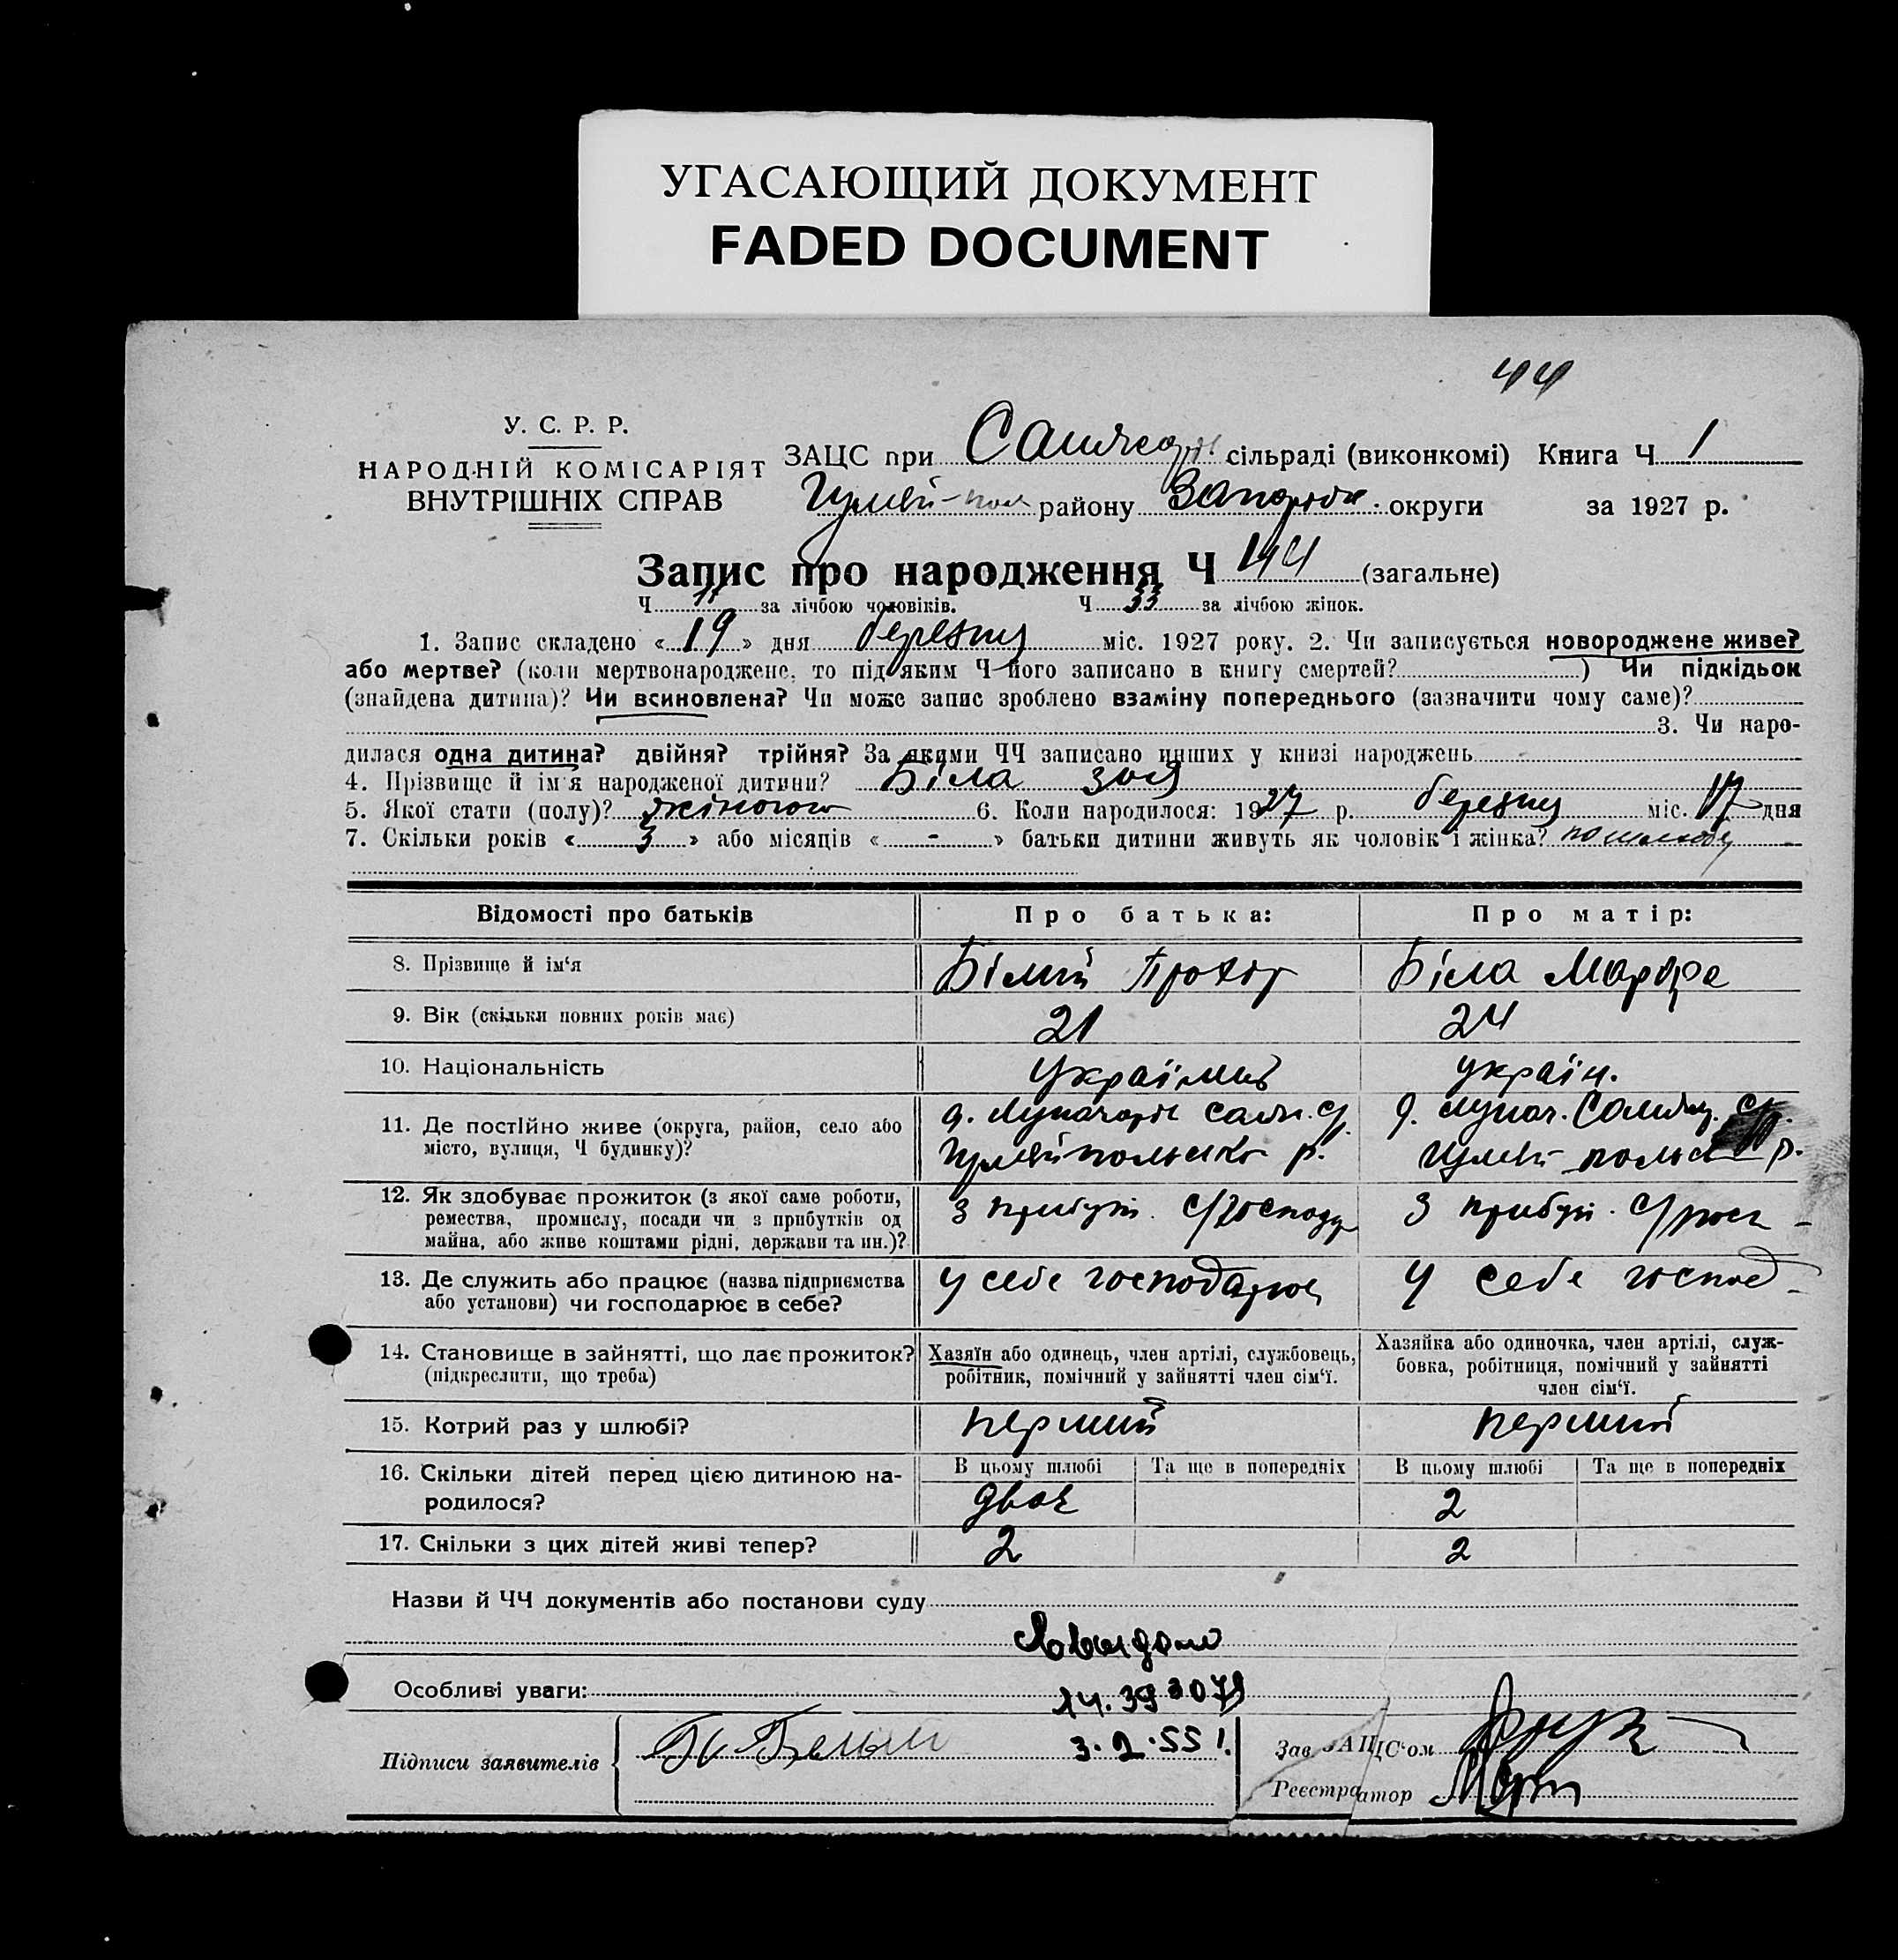 УГАСАЮЩИЙ ДОКУМЕНТ
FADED DOCUMENT
44
У. С. Р. Р.
НАРОДНІЙ КОМІСАРІЯТ
ВНУТРІШНІХ СПРАВ
ЗАЦС при сільраді (виконкомі) Книга Ч 1
Гуляй-пол району Запоріж. округи за 1927 р.
Запис про народження Ч 44 (загальне)
Ч 11 за лічбою чоловіків. Ч 33 за лічбою жінок.
1. Запис складено « 19 » дня березня міс. 1927 року. 2. Чи записується новороджене живе?
або мертве? (коли мертвонароджене, то під яким Ч його записано в книгу смертей? ) Чи підкідьок
(знайдена дитина)? Чи всиновлена? Чи може запис зроблено взаміну попереднього (зазначити чому саме)?
3. Чи наро-
дилася одна дитина? двійня? трійня? За якими ЧЧ записано инших у книзі народжень -
4. Прізвище й ім'я народженої дитини? Біла Зоя
5. Якої стати (полу)? жіночого 6. Коли народилося: 1927 р. березня міс. 17 дня
7. Скільки років « 3 » або місяців « - » батьки дитини живуть як чоловік і жінка? по шлюбу
Відомості про батьків Про батька: Про матір:
8. Прізвище й ім'я Білий Прохор Біла Марфа
9. Вік (скільки повних років має) 21 24
10. Національність Українць україн.
11. Де постійно живе (округа, район, село або
місто, вулиця, Ч будинку)?
Гуляйпольськ р. Гуляй-польськ р.
12. Як здобуває прожиток (з якої саме роботи,
ремества, промислу, посади чи з прибутків од
майна, або живе коштами рідні, держави та ин.)?
З прибут. с/господ З прибут. с/госп -
13. Де служить або працює (назва підприємства
або установи) чи господарює в себе?
У себе господарює У себе господ -
14. Становище в зайнятті, що дає прожиток?
(підкреслити, що треба)
Хазяїн або одинець, член артілі, службовець,
робітник, помічний у зайнятті член сім'ї.
Хазяйка або одиночка, член артілі, служ-
бовка, робітниця, помічний у зайнятті
член сім'ї.
15. Котрий раз у шлюбі? перший перший
16. Скільки дітей перед цією дитиною на-
родилося?
В цьому шлюбі Та ще в попередніх В цьому шлюбі Та ще в попередніх
двоє 2
17. Скільки з цих дітей живі тепер? 2 2
Назви й ЧЧ документів або постанови суду
Особливі уваги:
3.2.55 г.
Підписи заявителів
Зав ЗАЦС'ом
Реєстратор